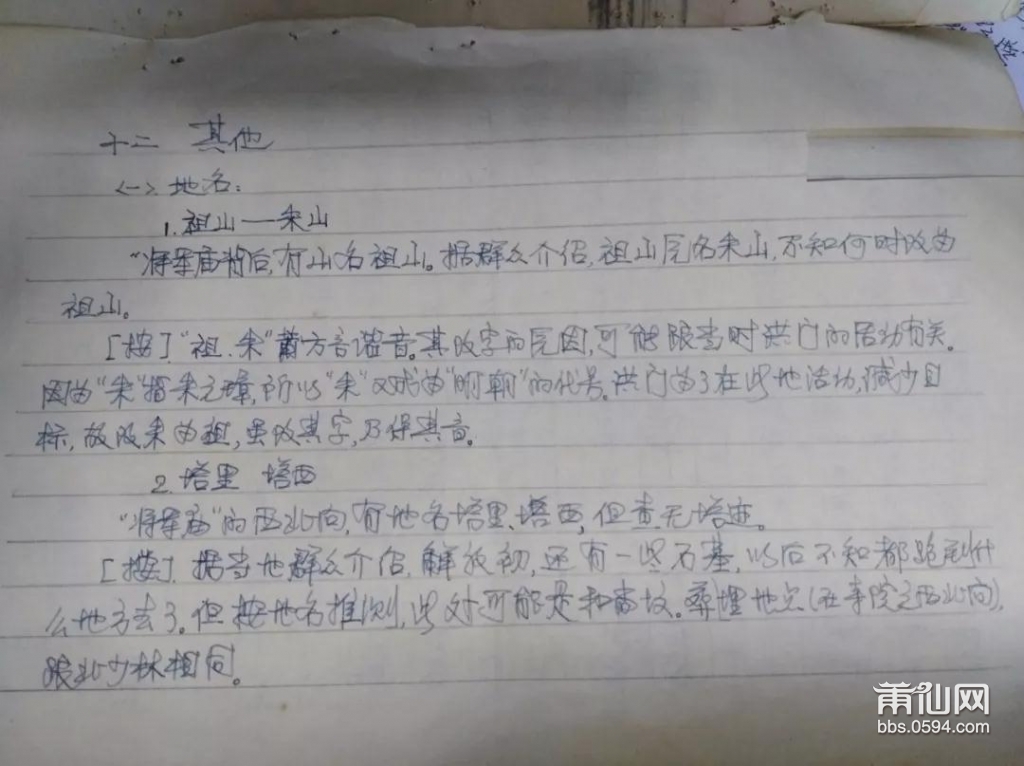 十二 其他
<一>地名:
1.祖山——朱山
"将军庙"背后,有山名祖山。据群众介绍,祖山原名朱山,不知何时改为
祖山。
[按]"祖.朱"莆方言谐音。其改字的原因,可能跟当时洪门的活动有关。
因为"朱"指朱元璋,所以"朱"又成为"明朝"的代号。洪门为了在此地活动,减少目
标,故改朱为祖,虽改其字,乃保其音。
2.塔里 塔西
"将军庙"的西北向,有地名塔里、塔西,但查无塔迹。
[按].据当地群众介绍,解放初,还有一些石基,以后不知都跑到什
么地方去了。但按地名推测,此处可能是和尚坟。葬埋地点(在寺院之西北向),
跟北少林相同。
莆仙网
bbs.0594.com